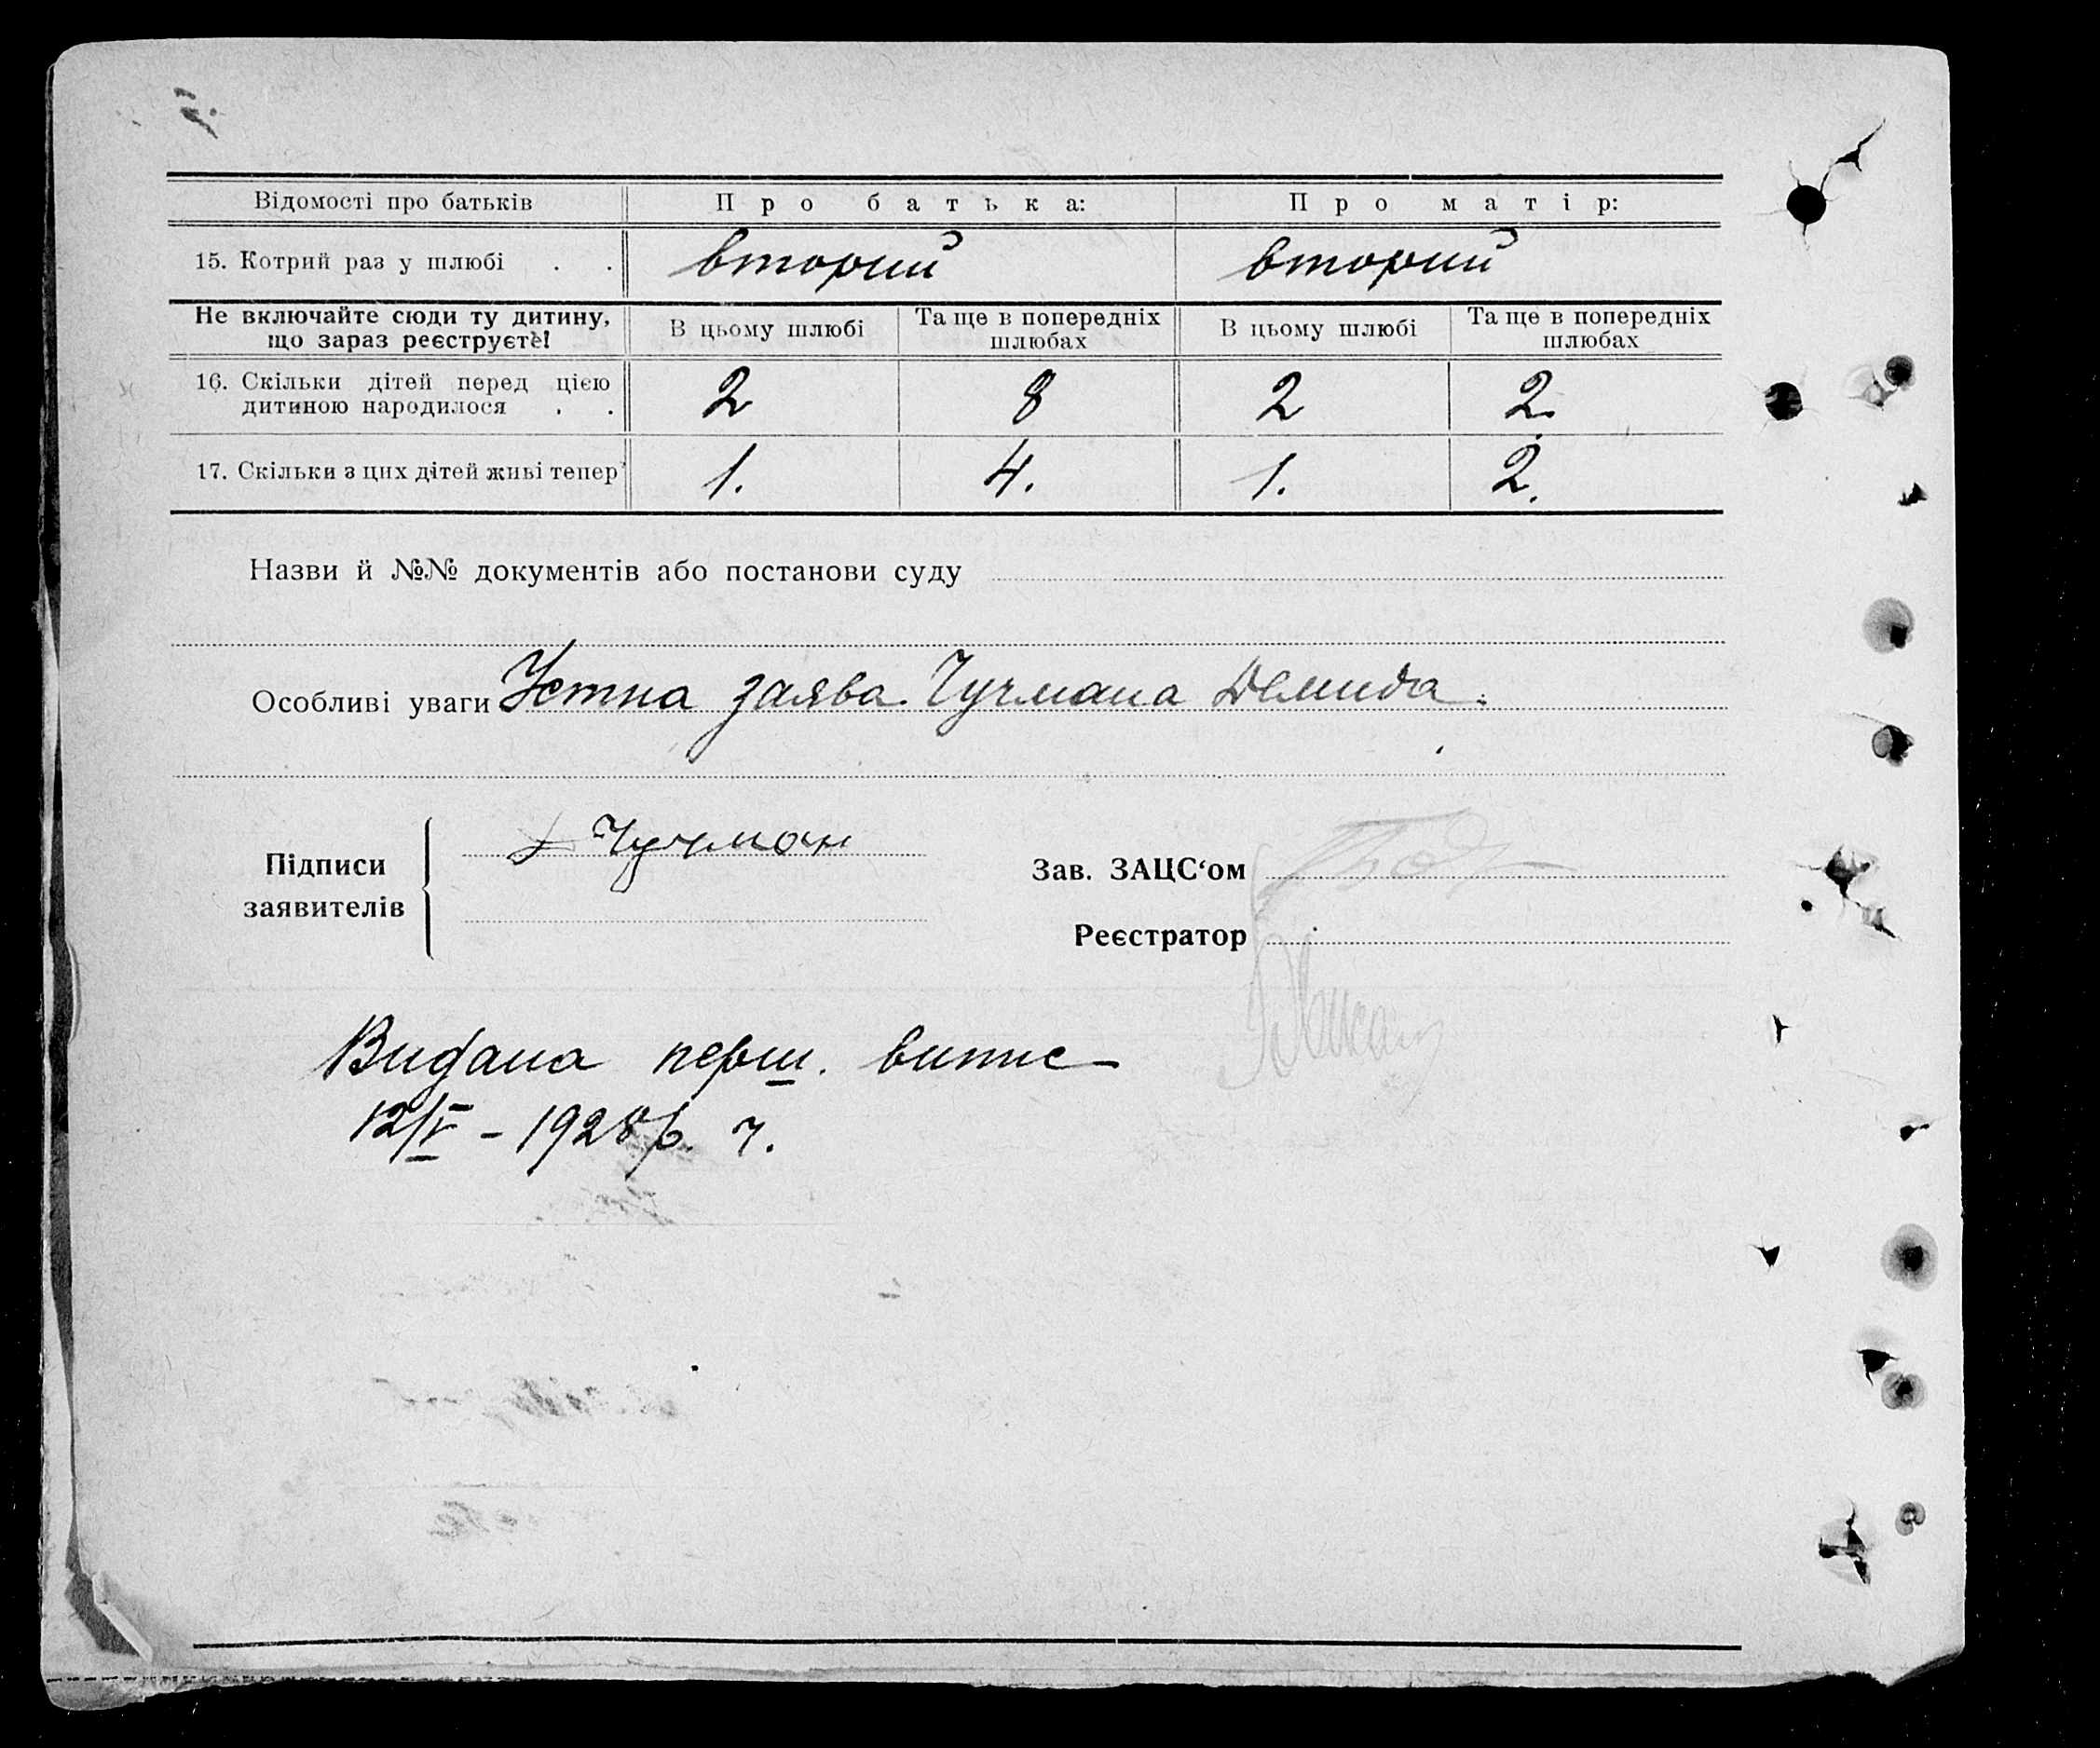 Відомості про батьків Про батька: Про матір:
15. Котрий раз у шлюбі . . вторий вторий
Не включайте сюди ту дитину, що зараз реєструєте! В цьому шлюбі Та ще в попередніх шлюбах В цьому шлюбі Та ще в попередніх шлюбах
16. Скільки дітей перед цією
дитиною народилося . . 2 8 2 2.
17. Скільки з цих дітей живі тепер 1. 4. 1. 2.
Назви й №№ документів або постанови суду
Особливі уваги Устна заява Чучмана Демида.
Підписи заявителів Чучман
Зав. ЗАЦС‘ом
Реєстратор
Видана перш. випис
12/V - 1928 р. ч.